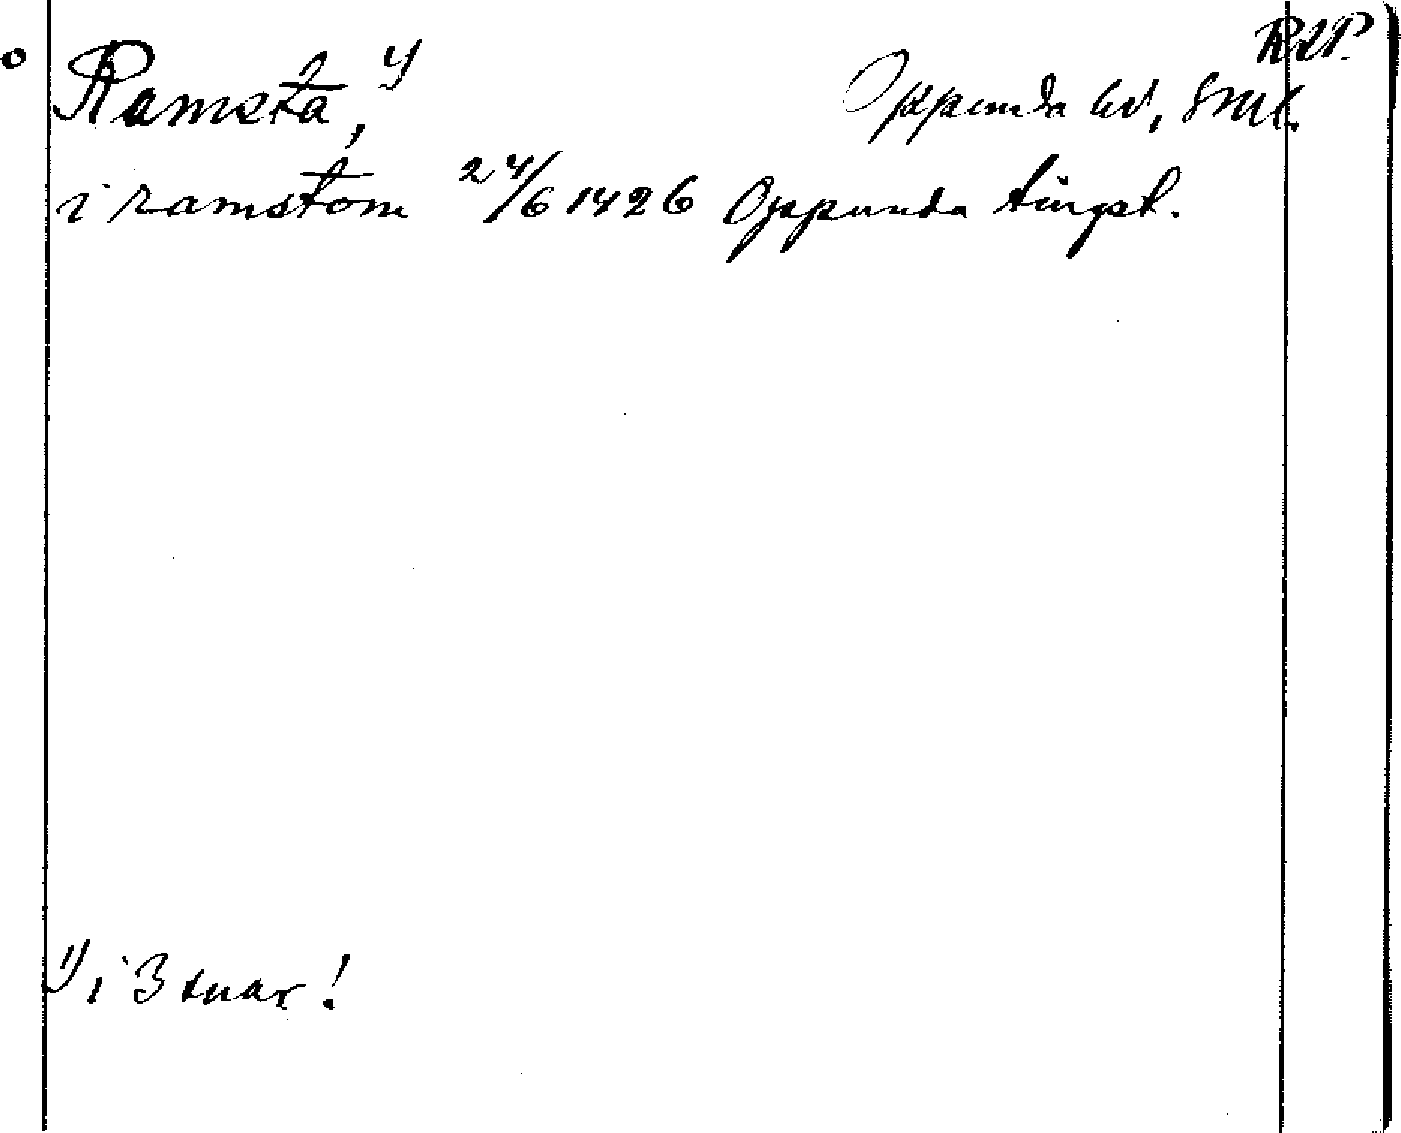 RAP.
Ramsta, 1) Oppunda hd, Sml.
i ramstom 24/6 1426 Oppunda tingst.
1) i 3 snar!